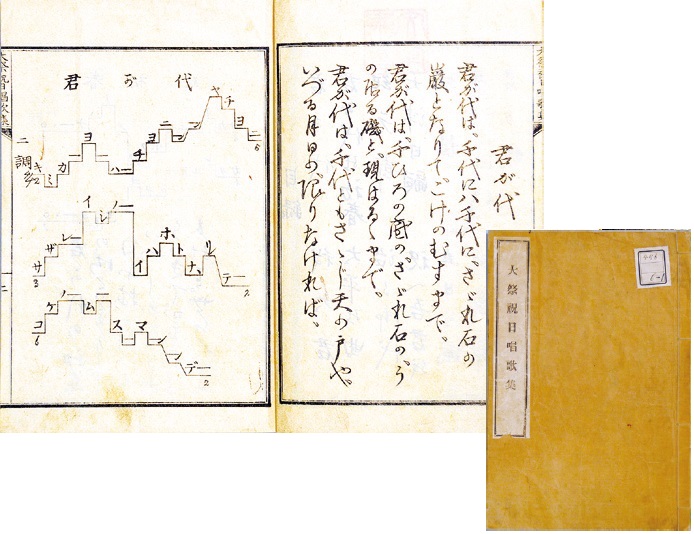 君が代
君が代は、千代に八千代に、さゞれ石の
巌となりて、こけのむすまで。
君が代は、千ひろの底の、さゞれ石の、う
のゐる磯と、現はるゝまで。
君が代は、千代ともさゝじ天の戸や、
いづる月日の、限りなければ。
君が代
ニ調
キミカヨハーチヨニーヤチヨニ
サザレーイシノーイハホトナリテー
コケノームースマーデー
大祭祝日唱歌集